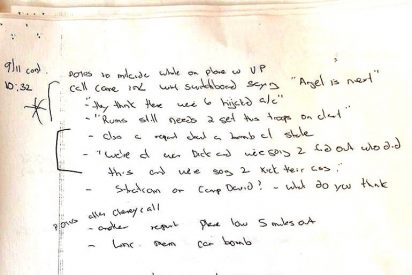 9/11 cont. POTUS to  while on plane w VP
10:32 call came into WH switchboard saying "Angel is next"
- "they think there were 6 hijacked a/c"
- "Rums still needs 2 get his troops on alert"
- also a report about a bomb at state
- "we're at war Dick and we're going 2 find out who did
this and we're going 2 kick their ass."
- Stratcom or Camp David? - what do you think
POTUS after Cheney call
- another report plane low 5 miles out
- Linc. mem car bomb